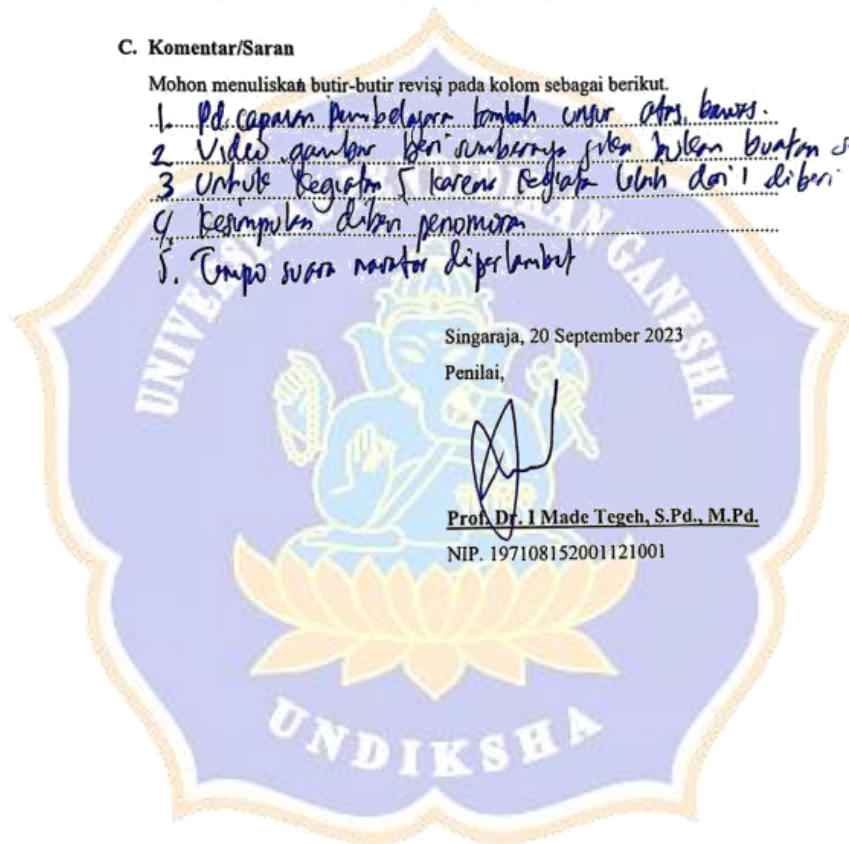 C. Komentar/Saran
Mohon menuliskan butir-butir revisi pada kolom sebagai berikut.
1. Pd. capaian pembelajaran tambah unsur atas bawas.
2 Video gambar beri sumbernya jika bukan buatan
3 Untuk kegiatan 5 karena kegiatan lebih dari 1 diberi
4. Kesimpulan diberi penomoran
5. Tempo suara narator diperlambat
Singaraja, 20 September 2023
Penilai,
Prof. Dr. I Made Tegeh, S.Pd., M.Pd.
NIP. 197108152001121001
UNIVERSITAS PENDIDIKAN GANESHA
UNDIKSHA